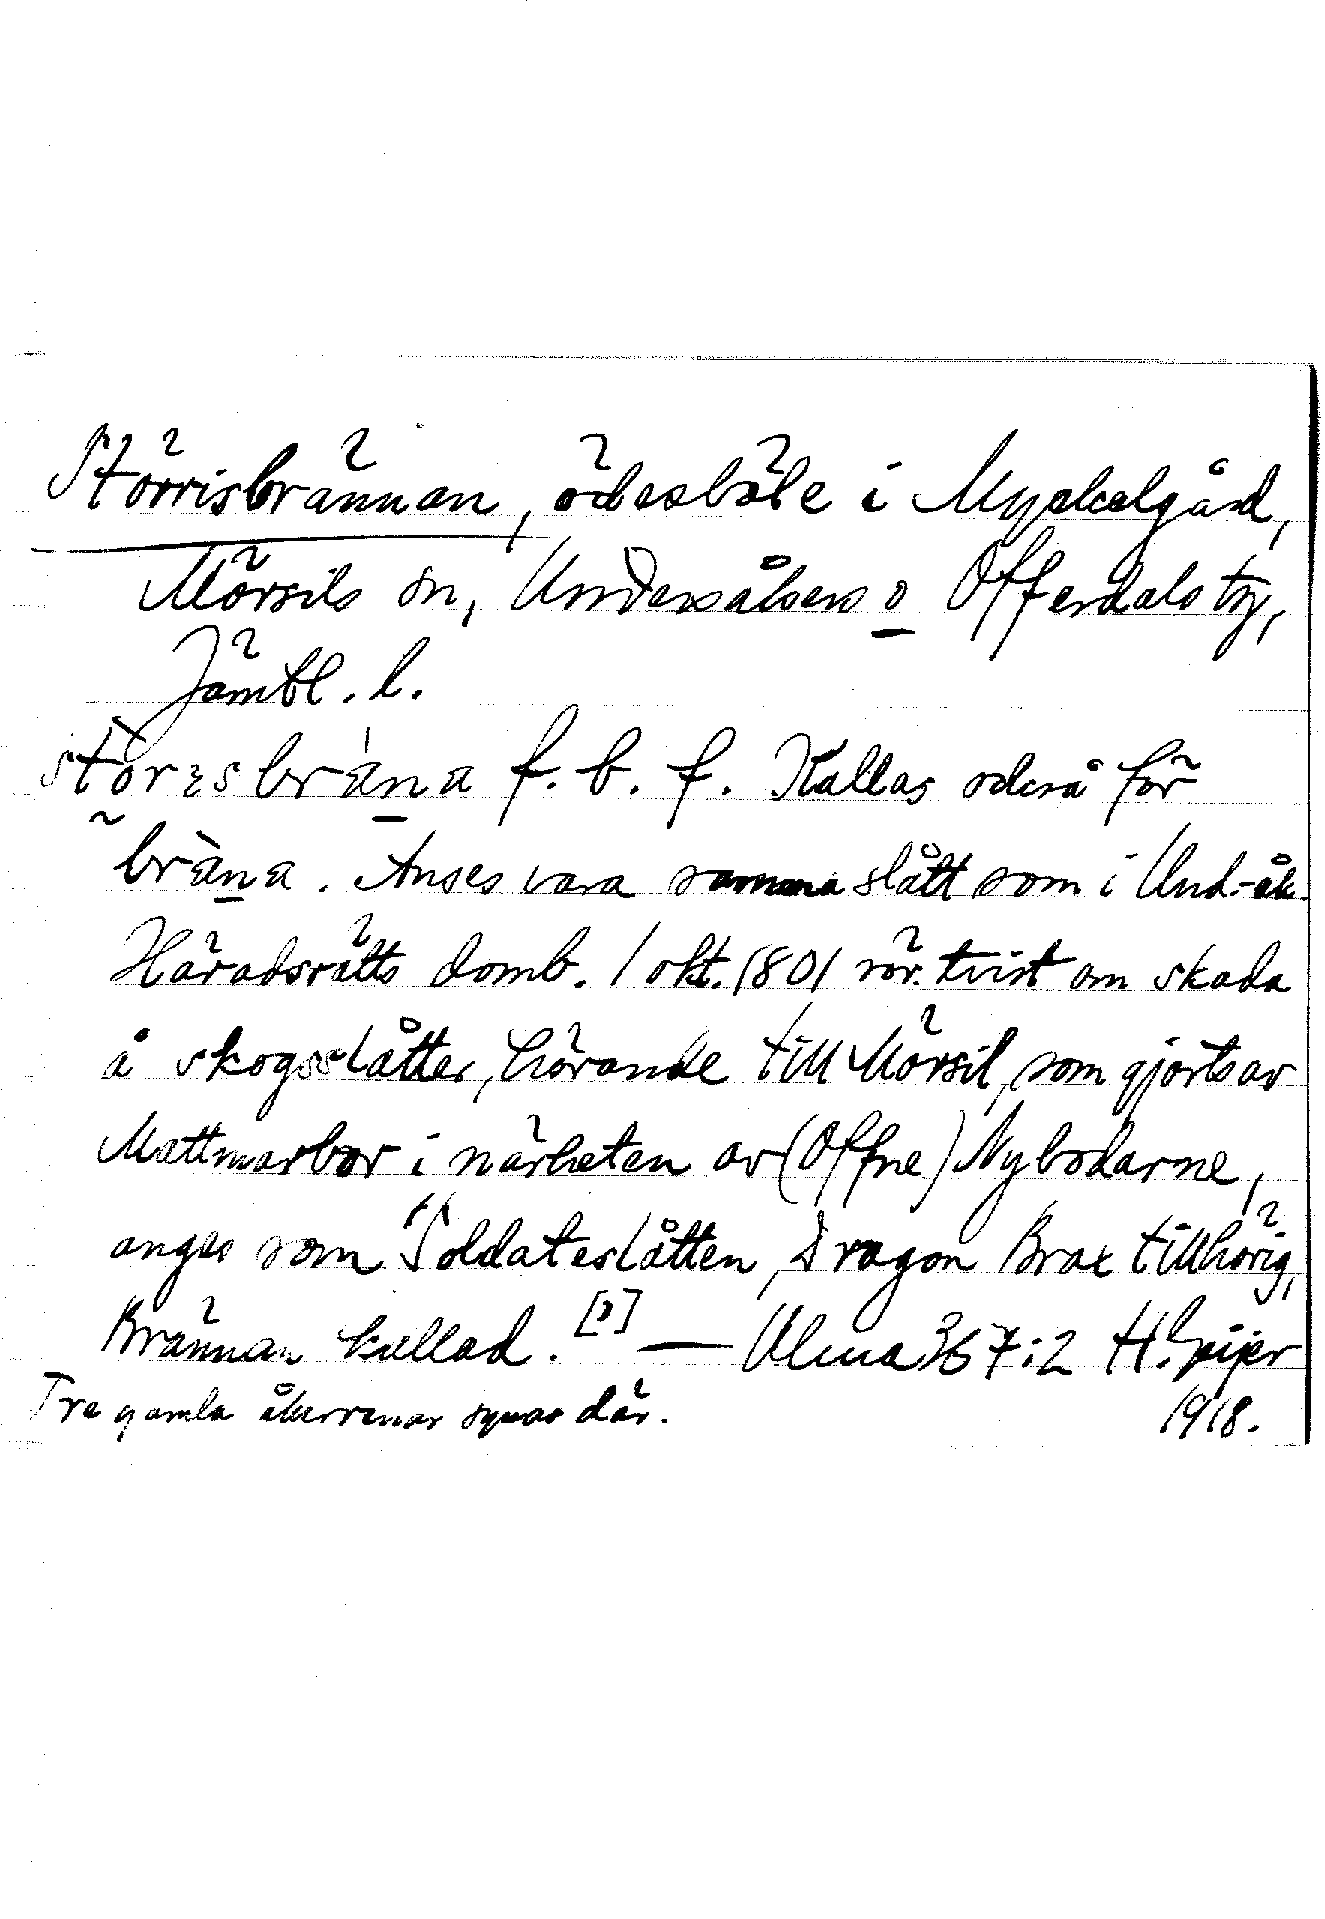 Störrisbrännan, ödesböle i Myckelgård,
Mörsils sn, Undersåkers o Offerdals tg,
Jämtl. l.
störesbräna f. b. f. Kallas också för
bräna. Anses vara samma slått som i Und-åk.
Häradsrätts domb. 1 okt. 1801 rör. tvist om skada
å skogsslåtter, hörande till Mörsil, som gjorts av
Mattmarbor i närheten av (Offne) Nybodarne,
anges som "Soldateslåtten, Dragon Brax tillhörig,
Brännan kallad. [?] — Ulma 367:2 H. Geijer
Tre gamla åkerrenar synas där. 1918.